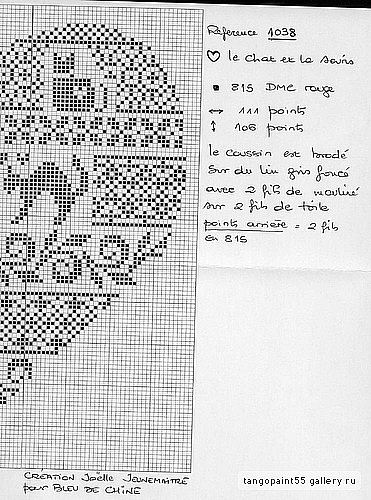 Référence 1038
♡ le chat et la souris
▪ 815 DMC rouge
↔ 111 points
↕ 106 points
le coussin est brodé
sur du lin gris foncé
avec 2 fils de mouliné
sur 2 fils de toile
points arrière = 2 fils
en 815
CREATION Joëlle JEUNEMAITRE
pour BLEU DE CHINE
tangopaint55 gallery.ru